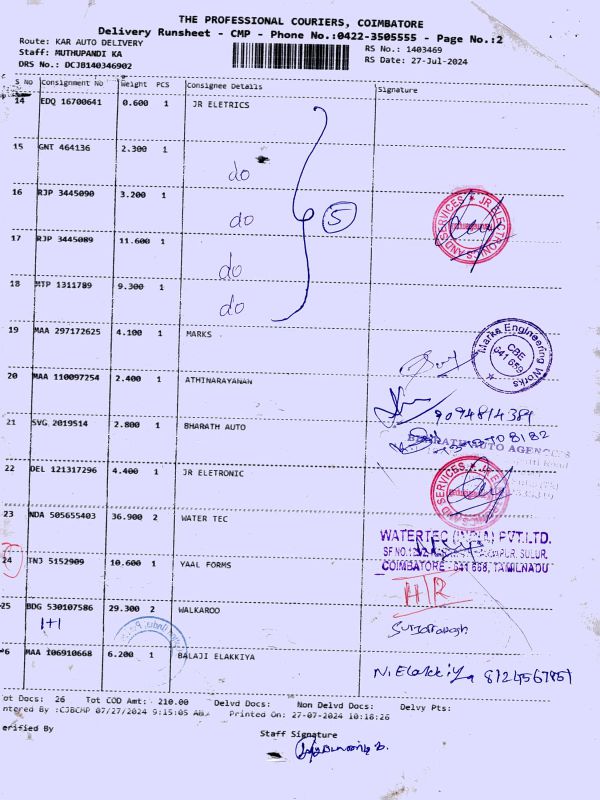 THE PROFESSIONAL COURIERS, COIMBATORE
Delivery Runsheet - CMP - Phone No.:0422-3505555 - Page No.:2
Route: KAR AUTO DELIVERY
RS No.: 1403469
Staff: MUTHUPANDI KA
RS Date: 27-Jul-2024
DRS No.: DCJB140346902
S No Consignment No Weight PCS Consignee Details Signature
14 EDQ 16700641 0.600 1 JR ELETRICS
15 GNT 464136 2.300 1 do
16 RJP 3445090 3.200 1 do
5
17 RJP 3445089 11.600 1 do
18 MTP 1311789 9.300 1 do
JR ELECTRONICS AND SERVICES
19 MAA 297172625 4.100 1 MARKS
Marks Engineering Works
CBE
641 659
20 MAA 110097254 2.400 1 ATHINARAYANAN
9094814384
21 SVG 2019514 2.800 1 BHARATH AUTO
BHARATH AUTO AGENCIES
22 DEL 121317296 4.400 1 JR ELETRONIC
23 NDA 505655403 36.900 2 WATER TEC
WATERTEC (INDIA) PVT.LTD.
SULUR.
COIMBATORE - 641 668, TAMILNADU
24 TNJ 5152909 10.600 1 YAAL FORMS
H/R
25 BDG 530107586 29.300 2 WALKAROO
1+1
6 MAA 106910668 6.200 1 BALAJI ELAKKIYA
N. Elakkiya
ot Docs: 26 Tot COD Amt: 210.00 Delvd Docs: Non Delvd Docs: Delvy Pts:
ntered By :CJBCMP 07/27/2024 9:15:05 AM Printed On: 27-07-2024 10:18:26
erified By
Staff Signature